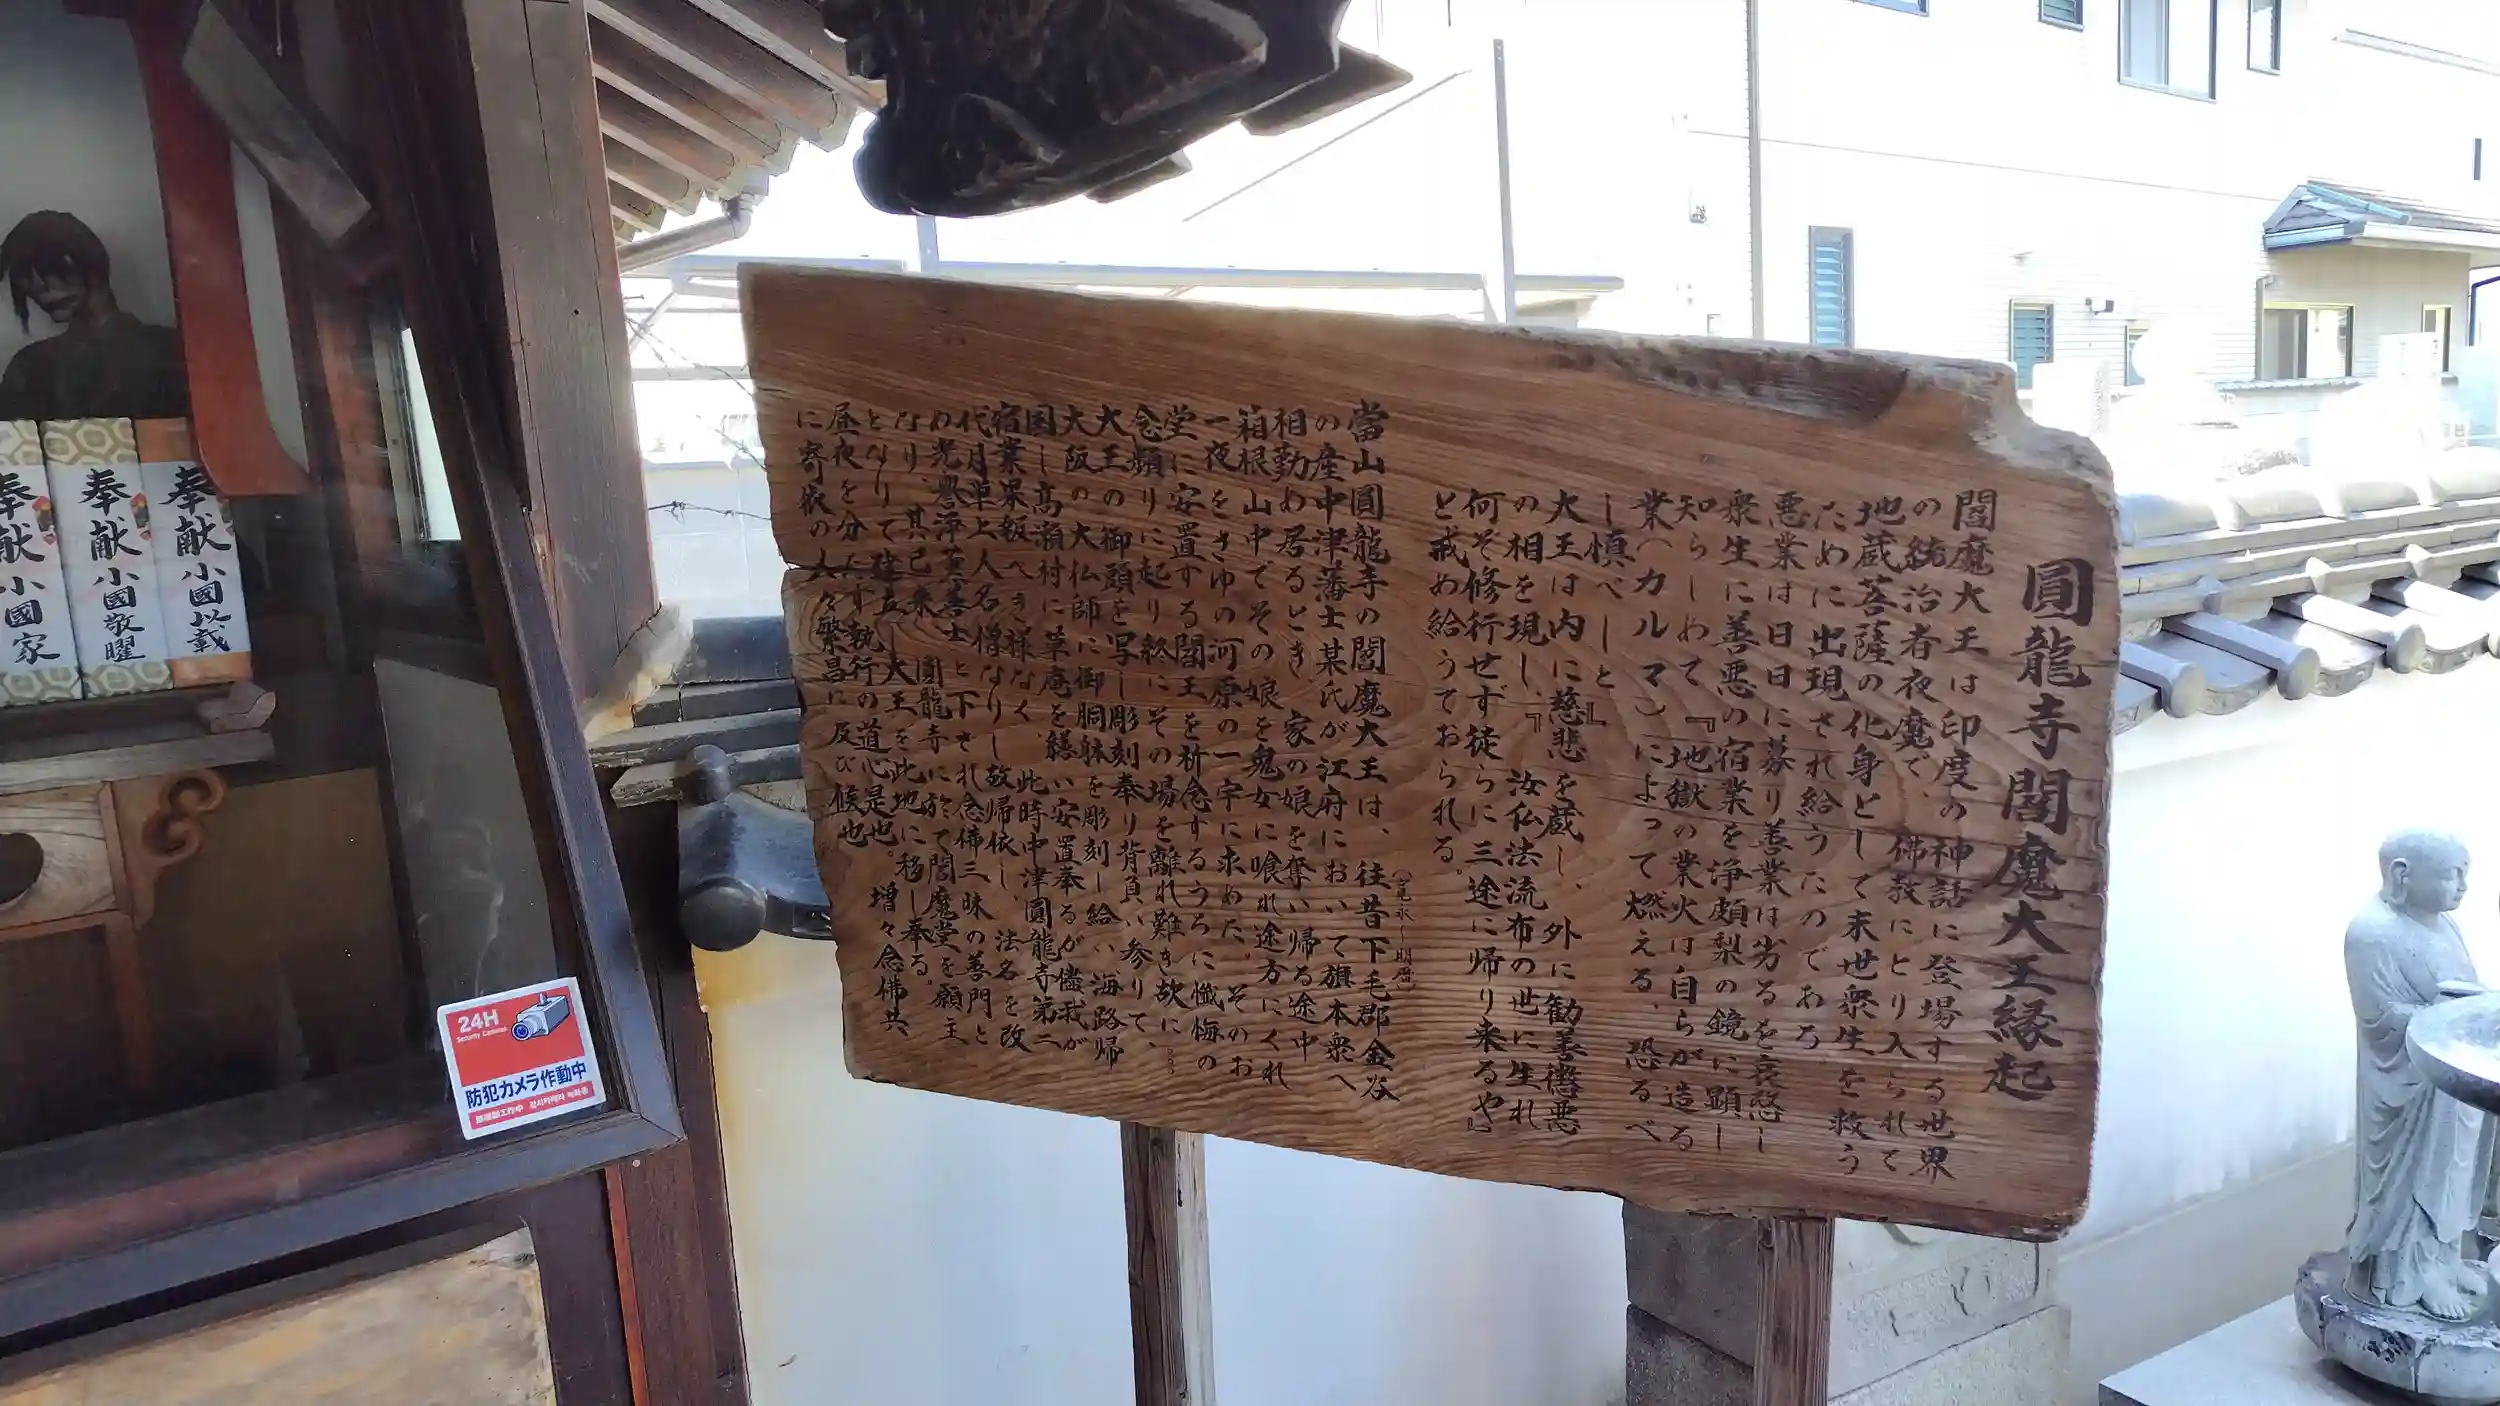 圓龍寺閻魔大王縁起
閻魔大王は印度の神話に登場する世界
の統治者夜魔で、佛教にとり入られて
地蔵菩薩の化身として末世衆生を救う
ために出現され給うたのであろ。
悪業は日日に募り善業は劣るを哀愍し
衆生に善悪の宿業を浄頗梨の鏡に顕し
知らしめて『地獄の業火は自らが造る
業(カルマ)によって燃える、恐るべ
し慎べしと』
大王は内に慈悲を蔵し、外に勧善懲悪
の相を現し、『汝仏法流布の世に生れ
何ぞ修行せず徒らに三途に帰り来るや』
と戒め給うておられる。
(寛永～明暦)
當山圓龍寺の閻魔大王は、往昔下毛郡金谷
の産中津藩士某氏が江府において旗本衆へ
相勤め居るとき、家の娘を奪い帰る途中
箱根山中でその娘を鬼女に喰れ途方にくれ
一夜をさゆの河原の一宇に求めた。そのお
堂に安置する閻王を祈念するうろに懺悔の
念頻りに起り終にその場を離れ難き故に…
大王の御頭を写し彫刻奉り背負い参りて、
大阪の大仏師に御胴躰を彫刻し給い海路帰
国し高瀬村に草庵を繕い安置奉るが儘我が
宿業果報へき様なく、此時中津圓龍寺第二
代月単上人名僧なりし故帰依し、法名を改
め光誉浄英善士と下され念佛三昧の善門と
なり、其已来圓龍寺に於て閻魔堂を願主
となりて建立し大王を此地に移し奉る。
昼夜を分たず執行の道心是也。増々念佛共
に寄依の人々繁昌に及び候也
奉献 小國家
奉献 小國敬曜
奉献 小國以載
24H
Security Cameras
防犯カメラ作動中